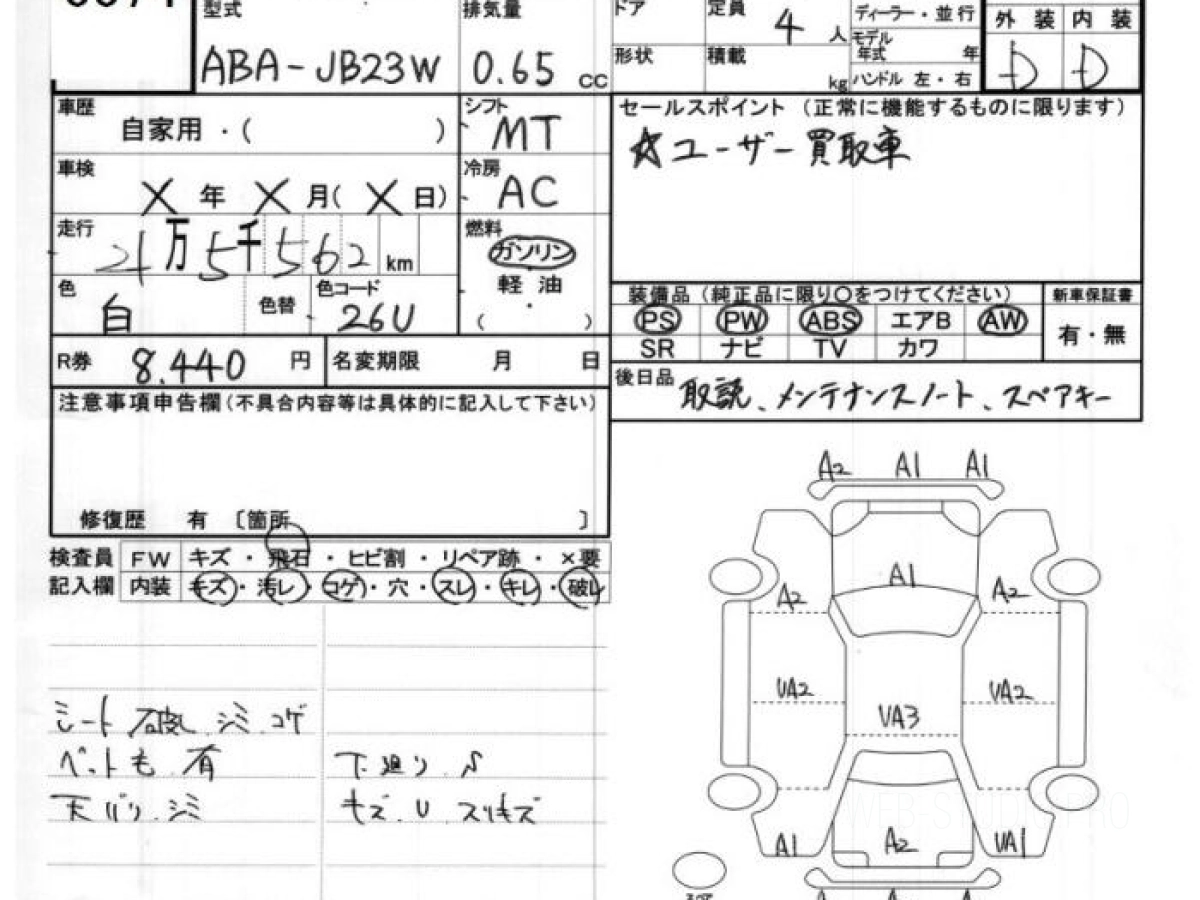 型式 排気量 ドア 定員 4 人 ディーラー・並行 外装 内装
モデル年式 年
ABA-JB23W 0.65 cc 形状 積載 kg ハンドル 左・右 D D
車歴 自家用・( ) シフト MT セールスポイント (正常に機能するものに限ります)
☆ユーザー買取車
車検 X 年 X 月( X 日) 冷房 AC
走行 21万5千562 km 燃料 ガソリン
軽・油
( )
色 白 色替 色コード 26U
装備品 (純正品に限り○をつけてください) 新車保証書
PS PW ABS エアB AW 有・無
SR ナビ TV カワ
R券 8.440 円 名変期限 月 日
後日品 取説、メンテナンスノート、スペアキー
注意事項申告欄(不具合内容等は具体的に記入して下さい)
修復歴 有 〔箇所 〕
検査員 FW キズ・飛石・ヒビ割・リペア跡・×要
記入欄 内装 キズ・汚レ・コゲ・穴・スレ・キレ・破レ
シート破レ.シミ.コゲ
ペットも.有
天バリ.シミ
下廻り.S
キズ.U スリキズ
A2 A1 A1
A1
A2 A2
UA2 UA2
UA3
A1 A2 UA1
WEB-STUDIO PRO